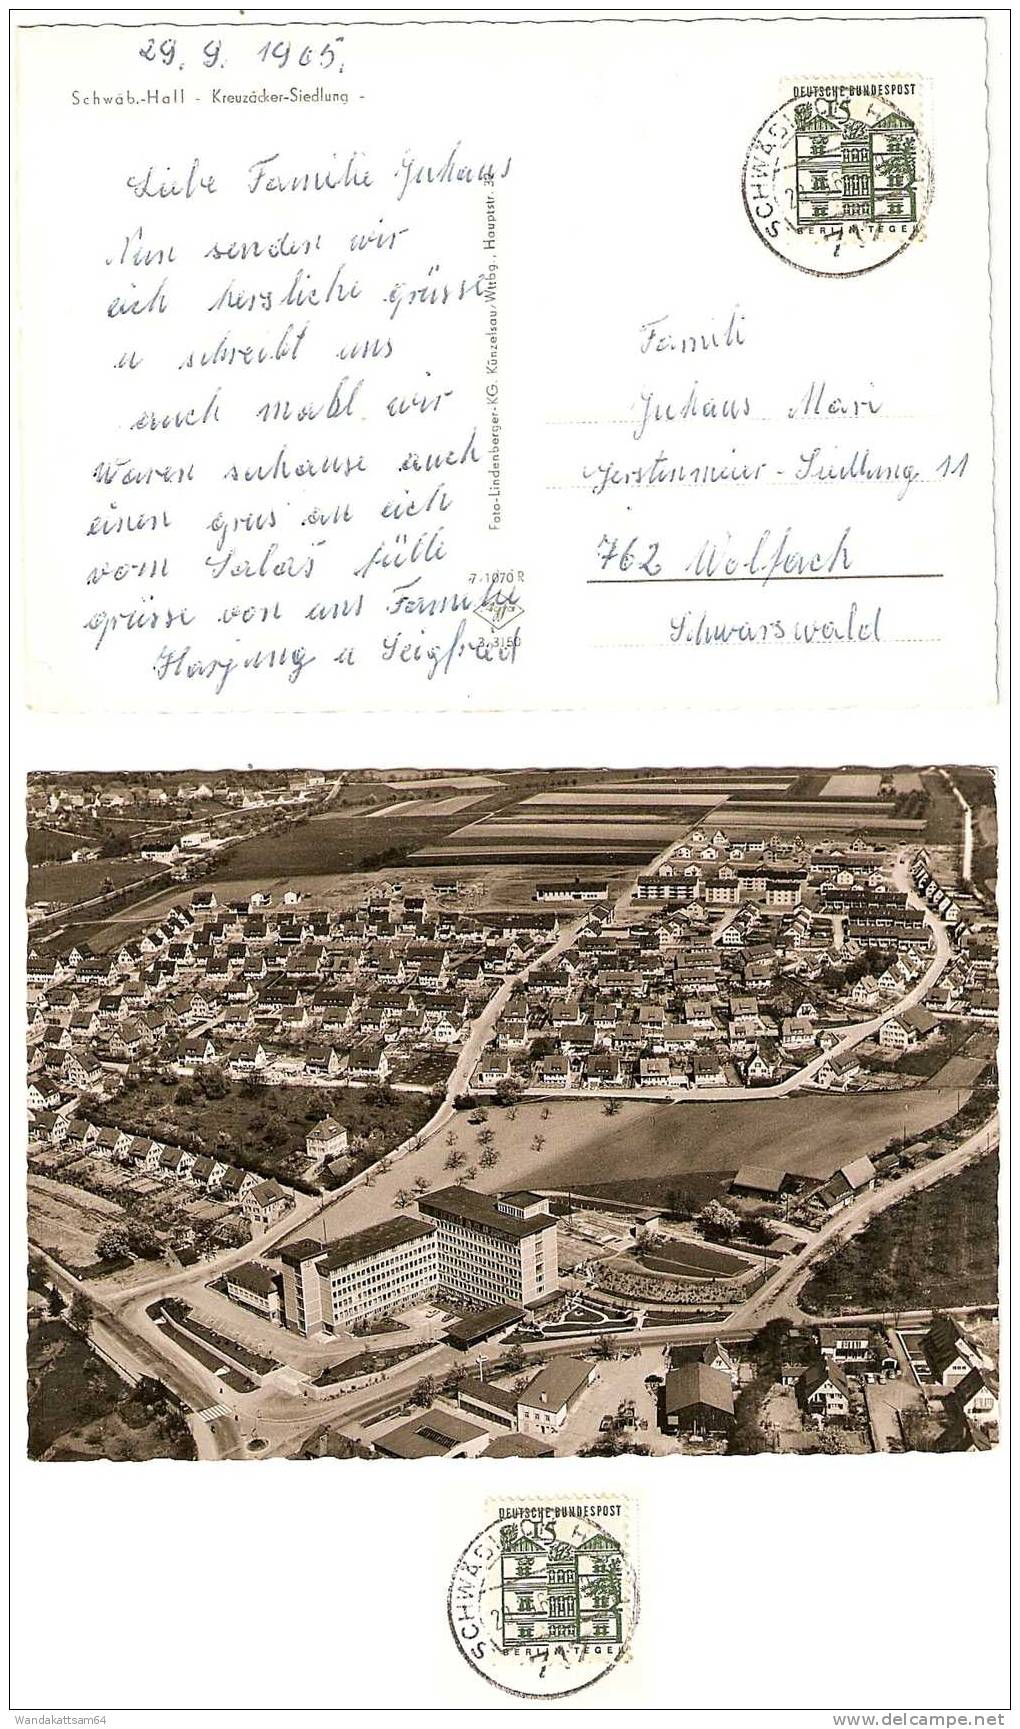 29. 9. 1965.
Schwäb.-Hall - Kreuzäcker-Siedlung -
Liebe Familie Juhaus
Nun senden wir
eich herzliche grüsse
u schreibt uns
auch mahl wir
Waren zuhause auch
einen grus an eich
vom Salas fülle
grüsse von uns Familie
Harjung u Seigfried
Foto-Lindenberger-KG. Künzelsau/Wttbg., Hauptstr. 39
7-1070 R
3.3150
DEUTSCHE BUNDESPOST
15
BERLIN-TEGEL
SCHWÄBISCH HALL
717
Famili
Juhaus Mari
Gerstenmeier-Siedlung 11
762 Wolfach
Schwarswald
DEUTSCHE BUNDESPOST
15
BERLIN-TEGEL
SCHWÄBISCH HALL
717
Wandakattsam64
delcampe.net